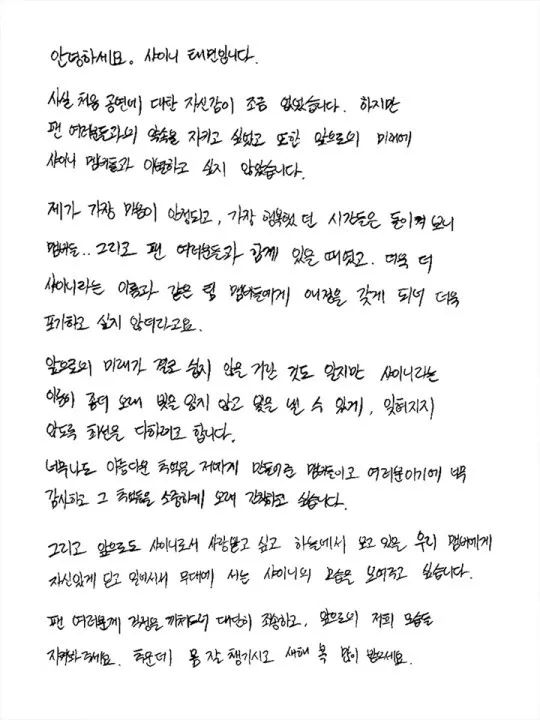 안녕하세요. 샤이니 태민입니다.
사실 처음 공연에 대한 자신감이 조금 없었습니다. 하지만
팬 여러분들과의 약속을 지키고 싶었고 또한 앞으로의 미래에
샤이니 멤버들과 이별하고 싶지 않았습니다.
제가 가장 마음이 안정되고, 가장 행복했던 시간들은 돌이켜 보니
멤버들.. 그리고 팬 여러분들과 함께 있을 때였고. 더욱 더
샤이니라는 이름과 같은 팀 멤버들에게 애정을 갖게 되니 더욱
포기하고 싶지 않더라고요.
앞으로의 미래가 결코 쉽지 않을 거란 것도 알지만 샤이니라는
이름이 좀더 오래 빛을 잃지 않고 빛을 낼 수 있게, 잊혀지지
않도록 최선을 다하려고 합니다.
너무나도 아름다운 추억을 저에게 만들어준 멤버들이고 여러분이기에 너무
감사하고 그 추억들을 소중하게 오래 간직하고 싶습니다.
그리고 앞으로도 샤이니로서 사랑받고 싶고 하늘에서 보고 있을 우리 멤버에게
자신있게 믿고 넷이서 무대에 서는 샤이니의 모습을 보여주고 싶습니다.
팬 여러분께 걱정을 끼쳐드려 대단히 죄송하고, 앞으로의 저희 모습을
지켜봐주세요. 추운데 몸 잘 챙기시고 새해 복 많이 받으세요.